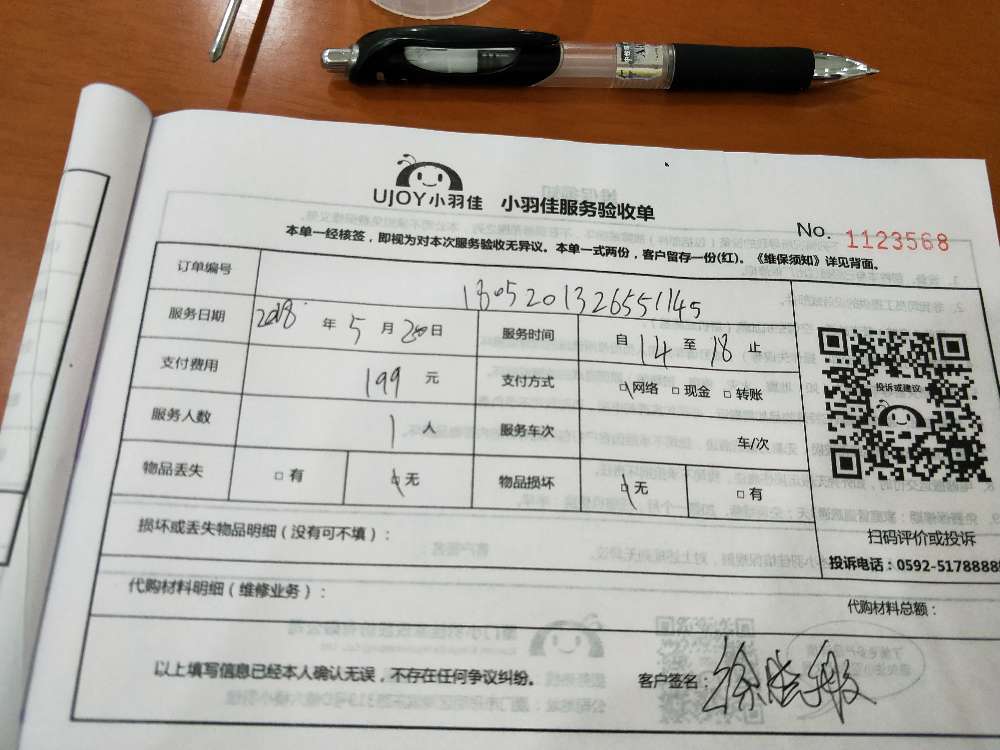 UJOY小羽佳 小羽佳服务验收单
No. 1123568
本单一经核签，即视为对本次服务验收无异议。本单一式两份，客户留存一份(红)。《维保须知》详见背面。
订单编号 1805201326551145
服务日期 2018 年 5 月 20 日 服务时间 自 14 至 18 止
支付费用 199 元 支付方式 □网络 □现金 □转账
服务人数 1 人 服务车次 车/次
物品丢失 □有 □无 物品损坏 □无 □有
投诉或建议
扫码评价或投诉
投诉电话：0592-5178888
损坏或丢失物品明细（没有可不填）：
代购材料明细（维修业务）：
代购材料总额：
以上填写信息已经本人确认无误，不存在任何争议纠纷。
客户签名：徐晓